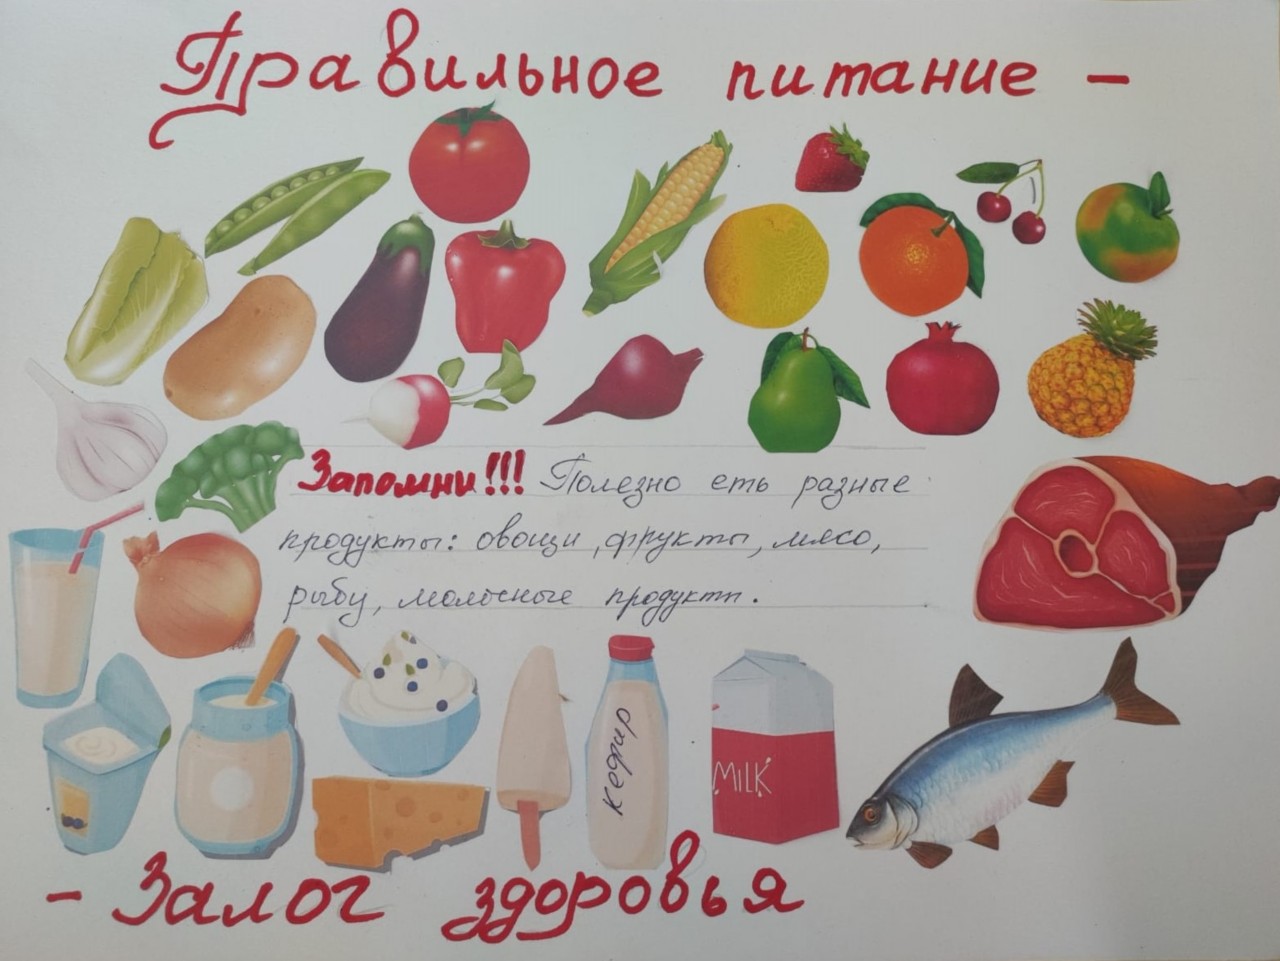 Правильное питание -
Запомни!!! Полезно есть разные
продукты: овощи, фрукты, мясо,
рыбу, молочные продукты.
кефир
MILK
- Залог здоровья